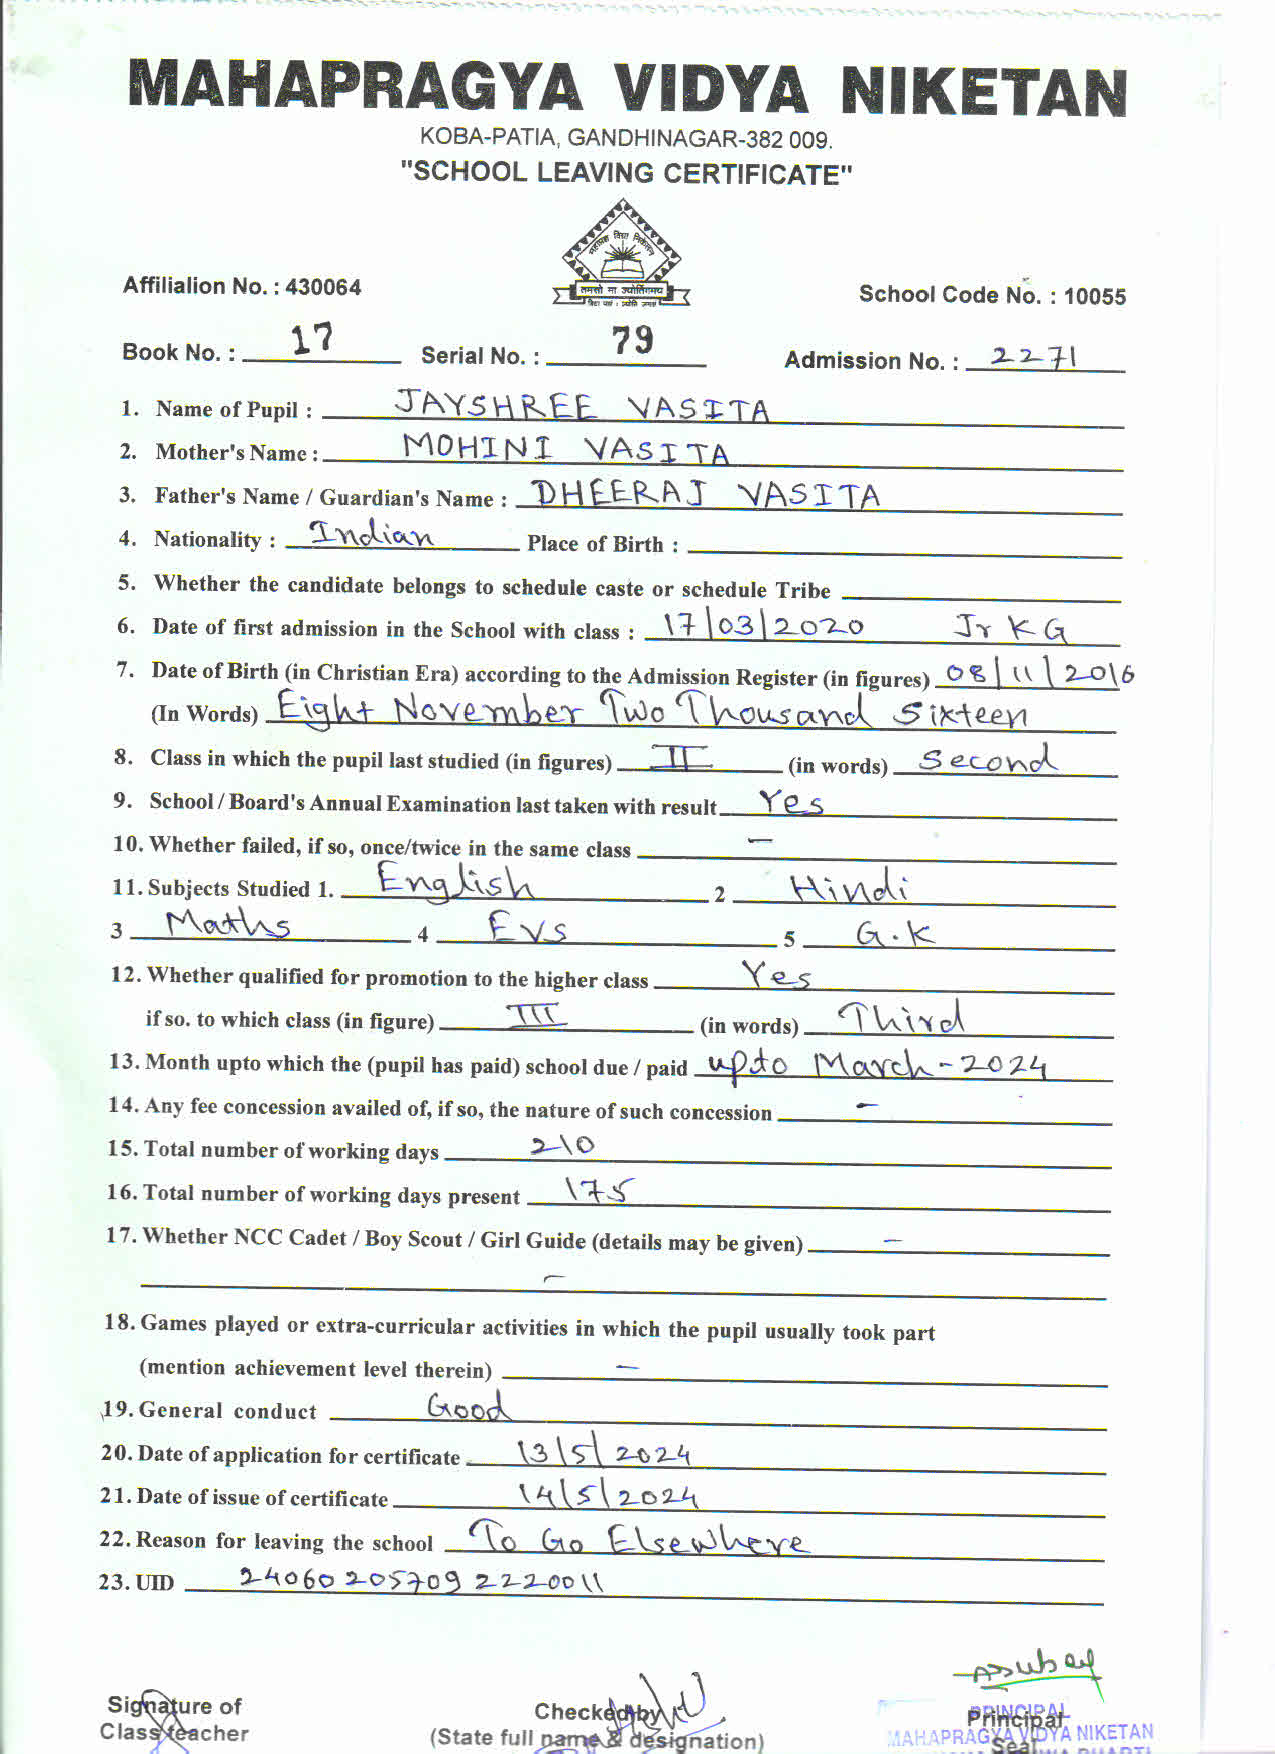 MAHAPRAGYA VIDYA NIKETAN
KOBA-PATIA, GANDHINAGAR-382 009.
"SCHOOL LEAVING CERTIFICATE"
महाप्रज्ञ विद्या निकेतन
तमसो मा ज्योतिर्गमय
Affilialion No. : 430064
School Code No. : 10055
Book No. : 17 Serial No. : 79 Admission No. : 2271
1. Name of Pupil : JAYSHREE VASITA
2. Mother's Name : MOHINI VASITA
3. Father's Name / Guardian's Name : DHEERAJ VASITA
4. Nationality : Indian Place of Birth :
5. Whether the candidate belongs to schedule caste or schedule Tribe
6. Date of first admission in the School with class : 17/03/2020 Jr KG
7. Date of Birth (in Christian Era) according to the Admission Register (in figures) 08/11/2016
(In Words) Eight November Two Thousand Sixteen
8. Class in which the pupil last studied (in figures) II (in words) Second
9. School / Board's Annual Examination last taken with result Yes
10. Whether failed, if so, once/twice in the same class -
11. Subjects Studied 1. English 2 Hindi
3 Maths 4 EVS 5 G.K
12. Whether qualified for promotion to the higher class Yes
if so. to which class (in figure) III (in words) Third
13. Month upto which the (pupil has paid) school due / paid upto March-2024
14. Any fee concession availed of, if so, the nature of such concession -
15. Total number of working days 210
16. Total number of working days present 175
17. Whether NCC Cadet / Boy Scout / Girl Guide (details may be given) -
-
18. Games played or extra-curricular activities in which the pupil usually took part
(mention achievement level therein) -
19. General conduct Good
20. Date of application for certificate 13/5/2024
21. Date of issue of certificate 14/5/2024
22. Reason for leaving the school To Go Elsewhere
23. UID 240602057092220011
Signature of
Class teacher
Checked by
(State full name & designation)
Principal
Seal
PRINCIPAL
MAHAPRAGYA VIDYA NIKETAN